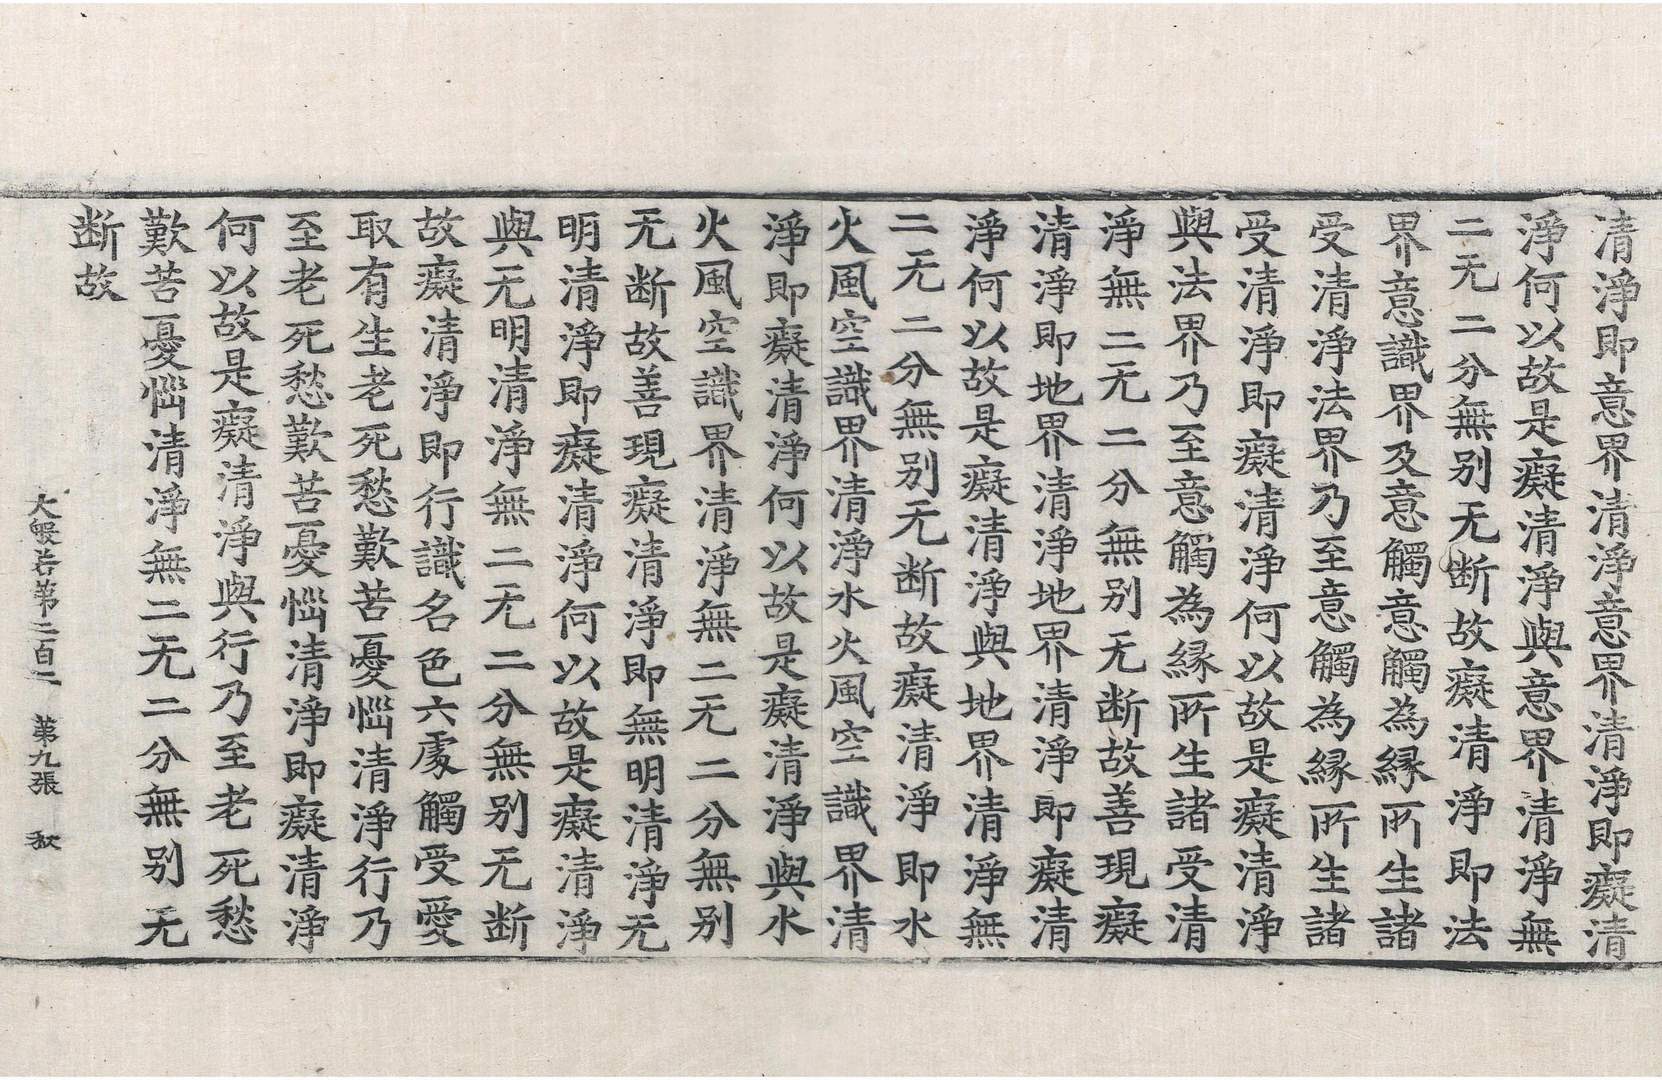 清淨即意界清淨意界清淨即癡清
淨何以故是癡清淨與意界清淨無
二无二分無别无断故癡清淨即法
界意識界及意觸意觸為縁所生諸
受清淨法界乃至意觸為縁所生諸
受清淨即癡清淨何以故是癡清淨
與法界乃至意觸為縁所生諸受清
淨無二无二分無别无断故善現癡
清淨即地界清淨地界清淨即癡清
淨何以故是癡清淨與地界清淨無
二无二分無别无断故癡清淨即水
火風空識界清淨水火風空識界清
淨即癡清淨何以故是癡清淨與水
火風空識界清淨無二无二分無别
无断故善現癡清淨即無明清淨无
明清淨即癡清淨何以故是癡清淨
與无明清淨無二无二分無别无断
故癡清淨即行識名色六處觸受愛
取有生老死愁歎苦憂惱清淨行乃
至老死愁歎苦憂惱清淨即癡清淨
何以故是癡清淨與行乃至老死愁
歎苦憂惱清淨無二无二分無别无
断故
大般若第二百二　第九張　秋